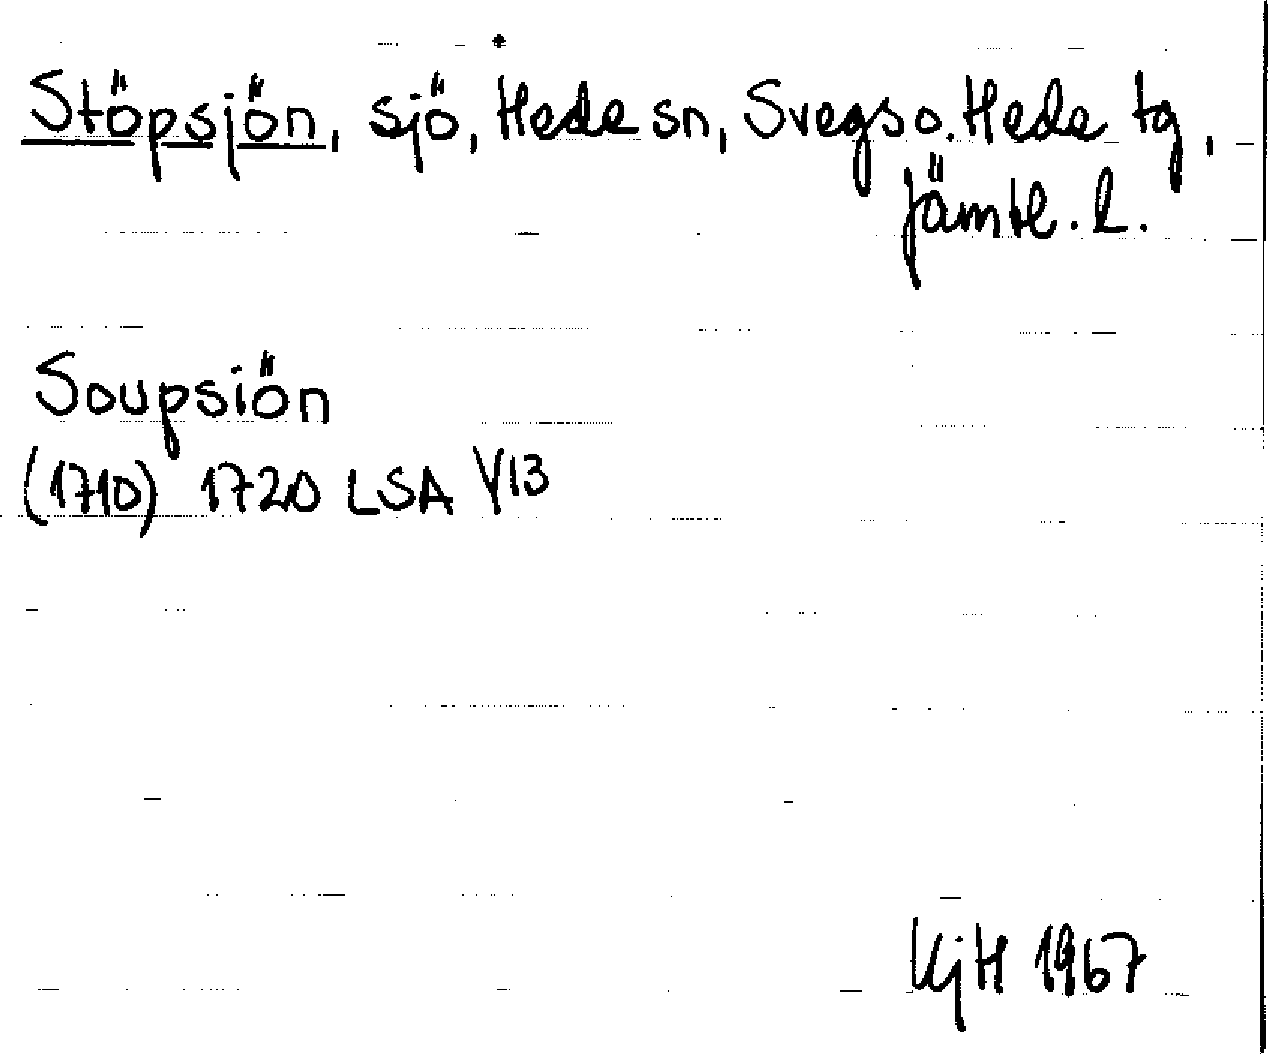 Stöpsjön, sjö, Hede sn, Svegs o. Hede tg,
Jämtl. l.
Soupsiön
(1710) 1720 LSA V13
KjH 1967